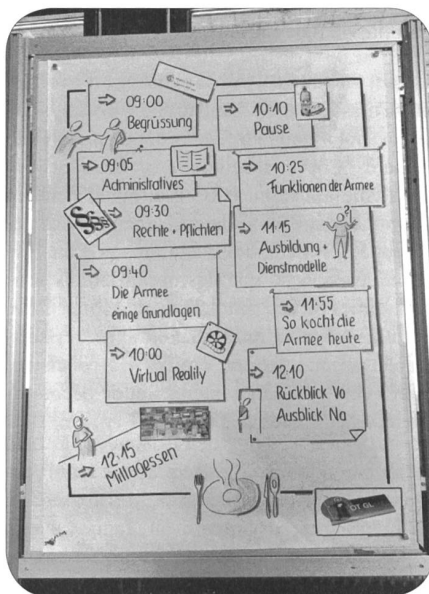 09:00
Begrüssung
09:05
Administratives
§§§§
09:30
Rechte + Pflichten
09:40
Die Armee
einige Grundlagen
10:00
Virtual Reality
10:10
Pause
10:25
Funktionen der Armee
?
11:15
Ausbildung +
Dienstmodelle
11:55
So kocht die
Armee heute
12:10
Rückblick Vo
Ausblick Na
12:15
Mittagessen
OT GL